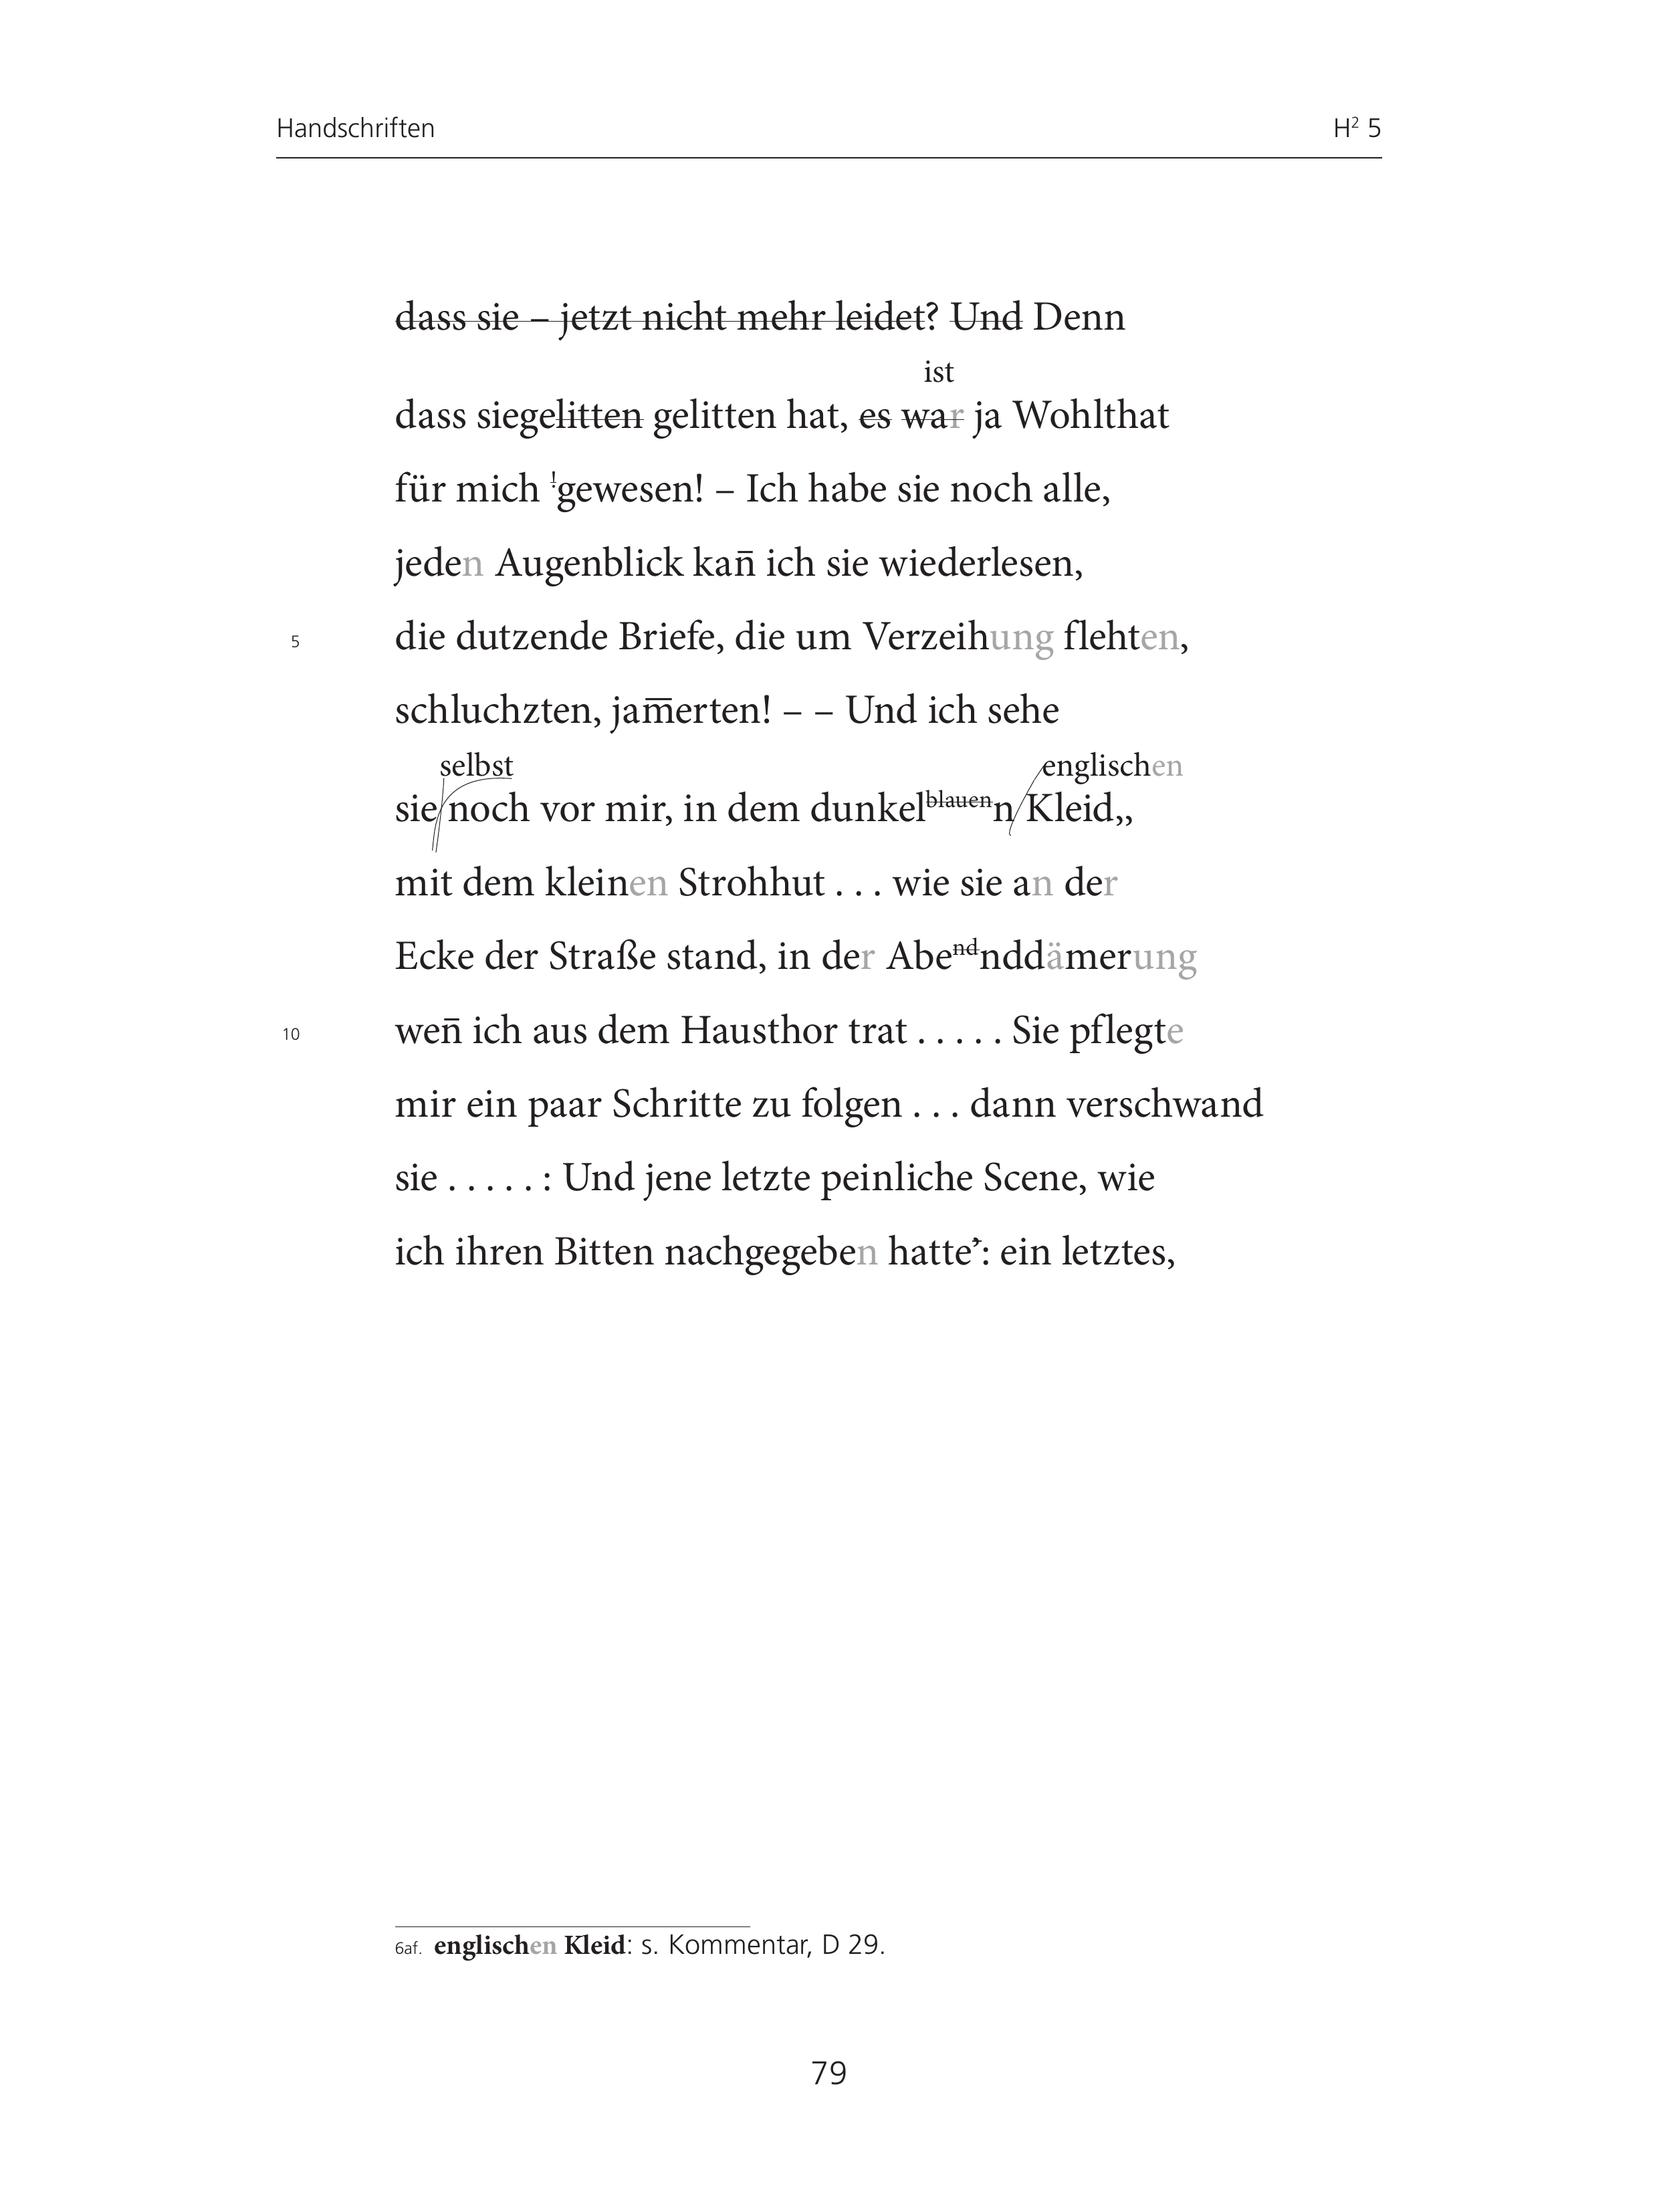 Handschriften H² 5
dass sie – jetzt nicht mehr leidet? Und Denn
ist
dass siegelitten gelitten hat, es war ja Wohlthat
für mich !gewesen! – Ich habe sie noch alle,
jeden Augenblick kan̅ ich sie wiederlesen,
5 die dutzende Briefe, die um Verzeihung flehten,
schluchzten, jam̅erten! – – Und ich sehe
selbst englischen
sie noch vor mir, in dem dunkelblauenn Kleid,,
mit dem kleinen Strohhut . . . wie sie an der
Ecke der Straße stand, in der Abendnddämerung
10 wen̅ ich aus dem Hausthor trat . . . . . Sie pflegte
mir ein paar Schritte zu folgen . . . dann verschwand
sie . . . . . : Und jene letzte peinliche Scene, wie
ich ihren Bitten nachgegeben hatte’: ein letztes,
6af. englischen Kleid: s. Kommentar, D 29.
79